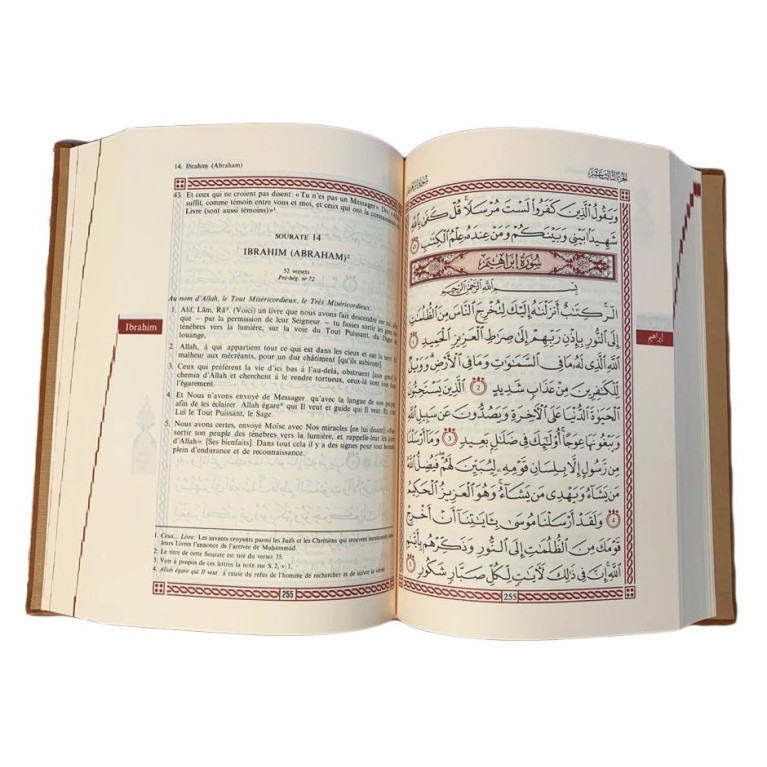 14. Ibrahim (Abraham)
43. Et ceux qui ne croient pas disent: «Tu n'es pas un Messager».
suffit, comme témoin entre vous et moi, et ceux qui ont la
Livre (sont aussi témoins)»¹.
SOURATE 14
IBRAHIM (ABRAHAM)²
52 versets
Pré-hég. n° 72
Au nom d'Allah, le Tout Miséricordieux, le Très Miséricordieux.
1. Alif, Lâm, Râ³. (Voici) un livre que nous avons fait descendre sur
que — par la permission de leur Seigneur — tu fasses sortir les gens
ténèbres vers la lumière, sur la voie du Tout Puissant, du
louange.
2. Allah, à qui appartient tout ce qui est dans les cieux et sur la
malheur aux mécréants, pour un dur châtiment [qu'ils subiront]
3. Ceux qui préfèrent la vie d'ici bas à l'au-delà, obstruent
chemin d'Allah et cherchent à le rendre tortueux, ceux-là sont
l'égarement.
4. Et Nous n'avons envoyé de Messager qu'avec la langue de son
afin de les éclairer. Allah égare⁴ qui Il veut et guide qui Il veut. Et
Lui le Tout Puissant, le Sage.
5. Nous avons certes, envoyé Moïse avec Nos miracles [en lui disant]:
sortir ton peuple des ténèbres vers la lumière, et rappelle-leur les
d'Allah». [Ses bienfaits]. Dans tout cela il y a des signes pour tout
plein d'endurance et de reconnaissance.
1. Ceux... Livre: Les savants croyants parmi les Juifs et les Chrétiens qui trouvent
leurs Livres l'annonce de l'arrivée de Muhammad.
2. Le titre de cette Sourate est tiré du verset 35.
3. Voir à propos de ces lettres la note sur S.2, v.1.
4. Allah égare qui Il veut: à cause du refus de l'homme de rechercher et de suivre la
255
Ibrahim
الجزء الثالث عشر
وَيَقُولُ ٱلَّذِينَ كَفَرُوا۟ لَسْتَ مُرْسَلًا ۚ قُلْ كَفَىٰ بِٱللَّهِ
شَهِيدًۢا بَيْنِى وَبَيْنَكُمْ وَمَنْ عِندَهُۥ عِلْمُ ٱلْكِتَٰبِ
سُورَةُ إِبْرَاهِيمَ
بِسْمِ ٱللَّهِ ٱلرَّحْمَٰنِ ٱلرَّحِيمِ
الٓر ۚ كِتَٰبٌ أَنزَلْنَٰهُ إِلَيْكَ لِتُخْرِجَ ٱلنَّاسَ مِنَ ٱلظُّلُمَٰتِ
إِلَى ٱلنُّورِ بِإِذْنِ رَبِّهِمْ إِلَىٰ صِرَٰطِ ٱلْعَزِيزِ ٱلْحَمِيدِ ١
ٱللَّهِ ٱلَّذِى لَهُۥ مَا فِى ٱلسَّمَٰوَٰتِ وَمَا فِى ٱلْأَرْضِ ۗ وَوَيْلٌ
لِّلْكَٰفِرِينَ مِنْ عَذَابٍ شَدِيدٍ ٢ ٱلَّذِينَ يَسْتَحِبُّونَ
ٱلْحَيَوٰةَ ٱلدُّنْيَا عَلَى ٱلْءَاخِرَةِ وَيَصُدُّونَ عَن سَبِيلِ ٱللَّهِ
وَيَبْغُونَهَا عِوَجًا ۚ أُو۟لَٰٓئِكَ فِى ضَلَٰلٍۭ بَعِيدٍ ٣ وَمَآ أَرْسَلْنَا
مِن رَّسُولٍ إِلَّا بِلِسَانِ قَوْمِهِۦ لِيُبَيِّنَ لَهُمْ ۖ فَيُضِلُّ ٱللَّهُ
مَن يَشَآءُ وَيَهْدِى مَن يَشَآءُ ۚ وَهُوَ ٱلْعَزِيزُ ٱلْحَكِيمُ
٤ وَلَقَدْ أَرْسَلْنَا مُوسَىٰ بِـَٔايَٰتِنَآ أَنْ أَخْرِجْ
قَوْمَكَ مِنَ ٱلظُّلُمَٰتِ إِلَى ٱلنُّورِ وَذَكِّرْهُم بِأَيَّىٰمِ
ٱللَّهِ ۚ إِنَّ فِى ذَٰلِكَ لَءَايَٰتٍ لِّكُلِّ صَبَّارٍ شَكُورٍ
255
إبراهيم